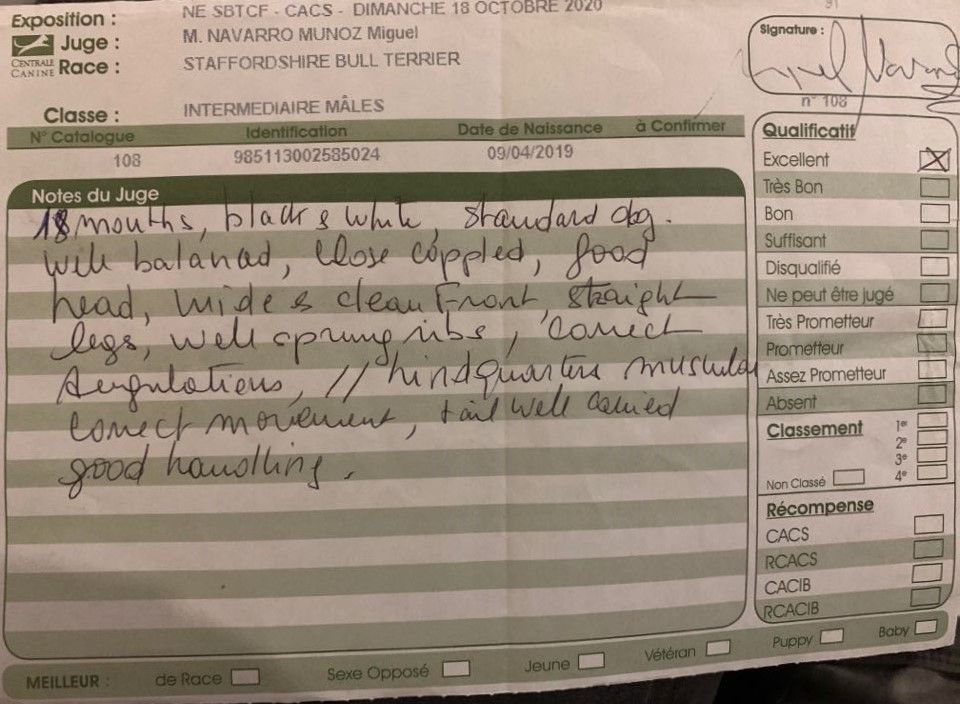 Exposition : NE SBTCF - CACS - DIMANCHE 18 OCTOBRE 2020
Juge : M. NAVARRO MUNOZ Miguel
CENTRALE CANINE
Race : STAFFORDSHIRE BULL TERRIER
Classe : INTERMEDIAIRE MÂLES
N° Catalogue Identification Date de Naissance à Confirmer
108 985113002585024 09/04/2019
Notes du Juge
18 mouths, black & white, standard dog.
well balanced, close coppled, good
head, wide & clean Front, straight
legs, well sprung ribs, correct
// hindquarters muskular
correct movement, tail well carried
good handling.
Signature :
n° 108
Qualificatif
Excellent
Très Bon
Bon
Suffisant
Disqualifié
Ne peut être jugé
Très Prometteur
Prometteur
Assez Prometteur
Absent
Classement 1er
2e
3e
4e
Non Classé
Récompense
CACS
RCACS
CACIB
RCACIB
MEILLEUR : de Race Sexe Opposé Jeune Vétéran Puppy Baby